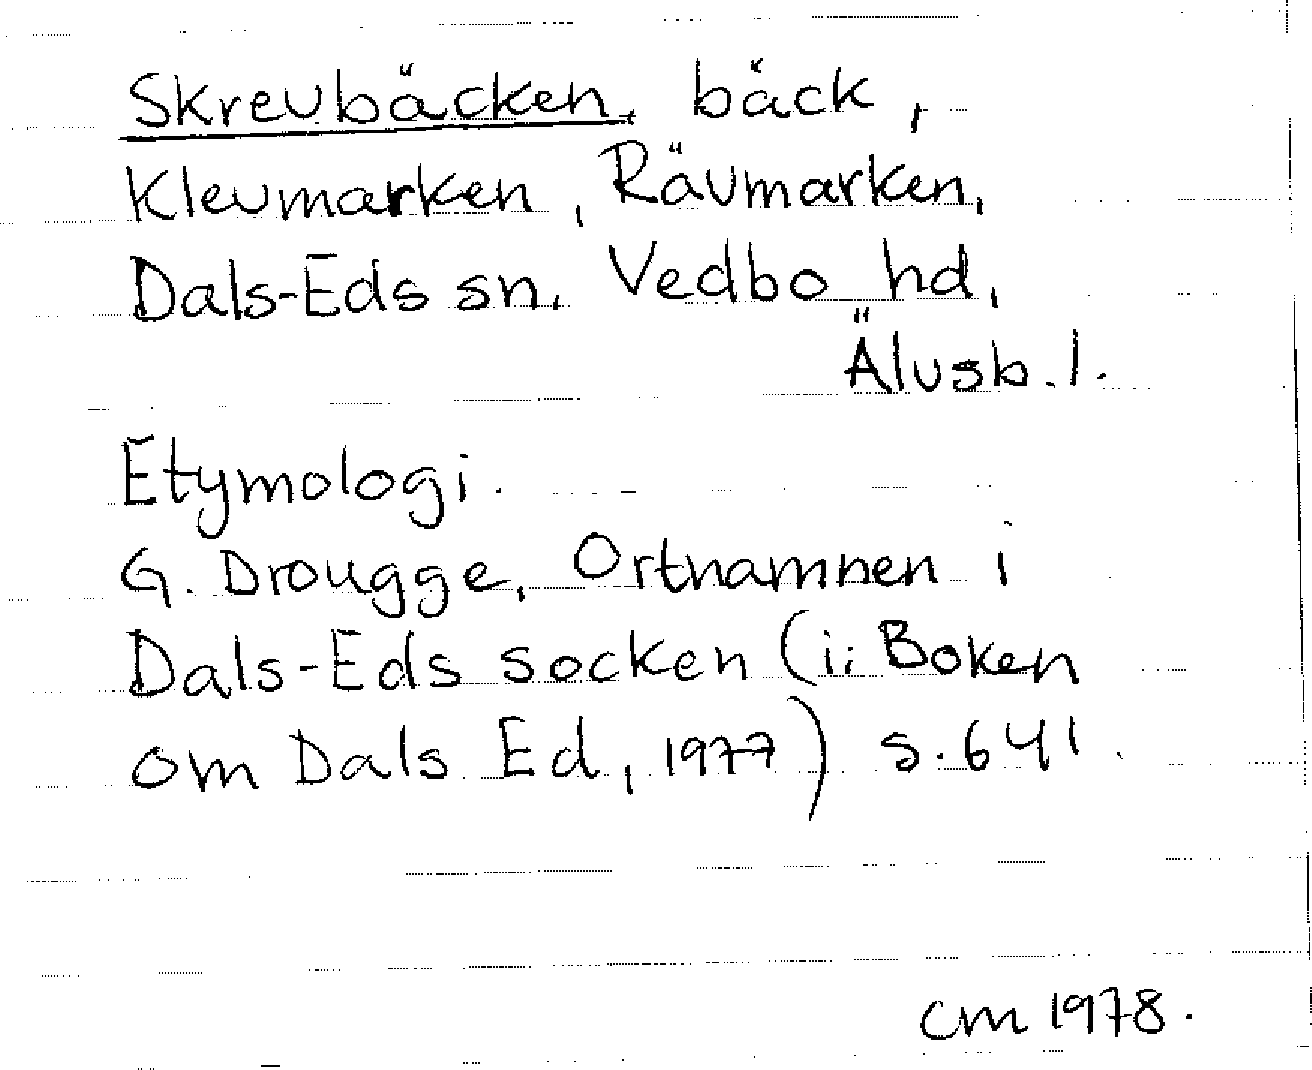 Skrevbäcken, bäck,
Klevmarken, Rävmarken,
Dals-Eds sn, Vedbo hd,
Älvsb. l.
Etymologi.
G. Drougge, Ortnamnen i
Dals-Eds socken (i: Boken
om Dals Ed, 1977) s. 641.
CM 1978.